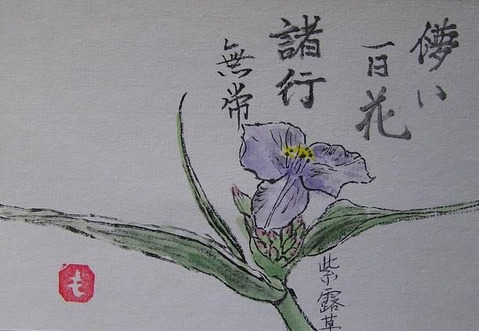 儚い
一日花
諸行
無常
紫露草
も